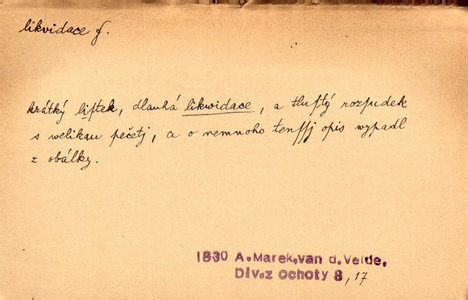 likvidace f.
krátký liſtek, dlauhá likwidace, a tluſtý rozsudek
s welikau pečetj, a o nemnoho tenſſj opis wypadl
z obálky.
1830 A.Marek,van d.Velde,
Div.z ochoty 8, 17